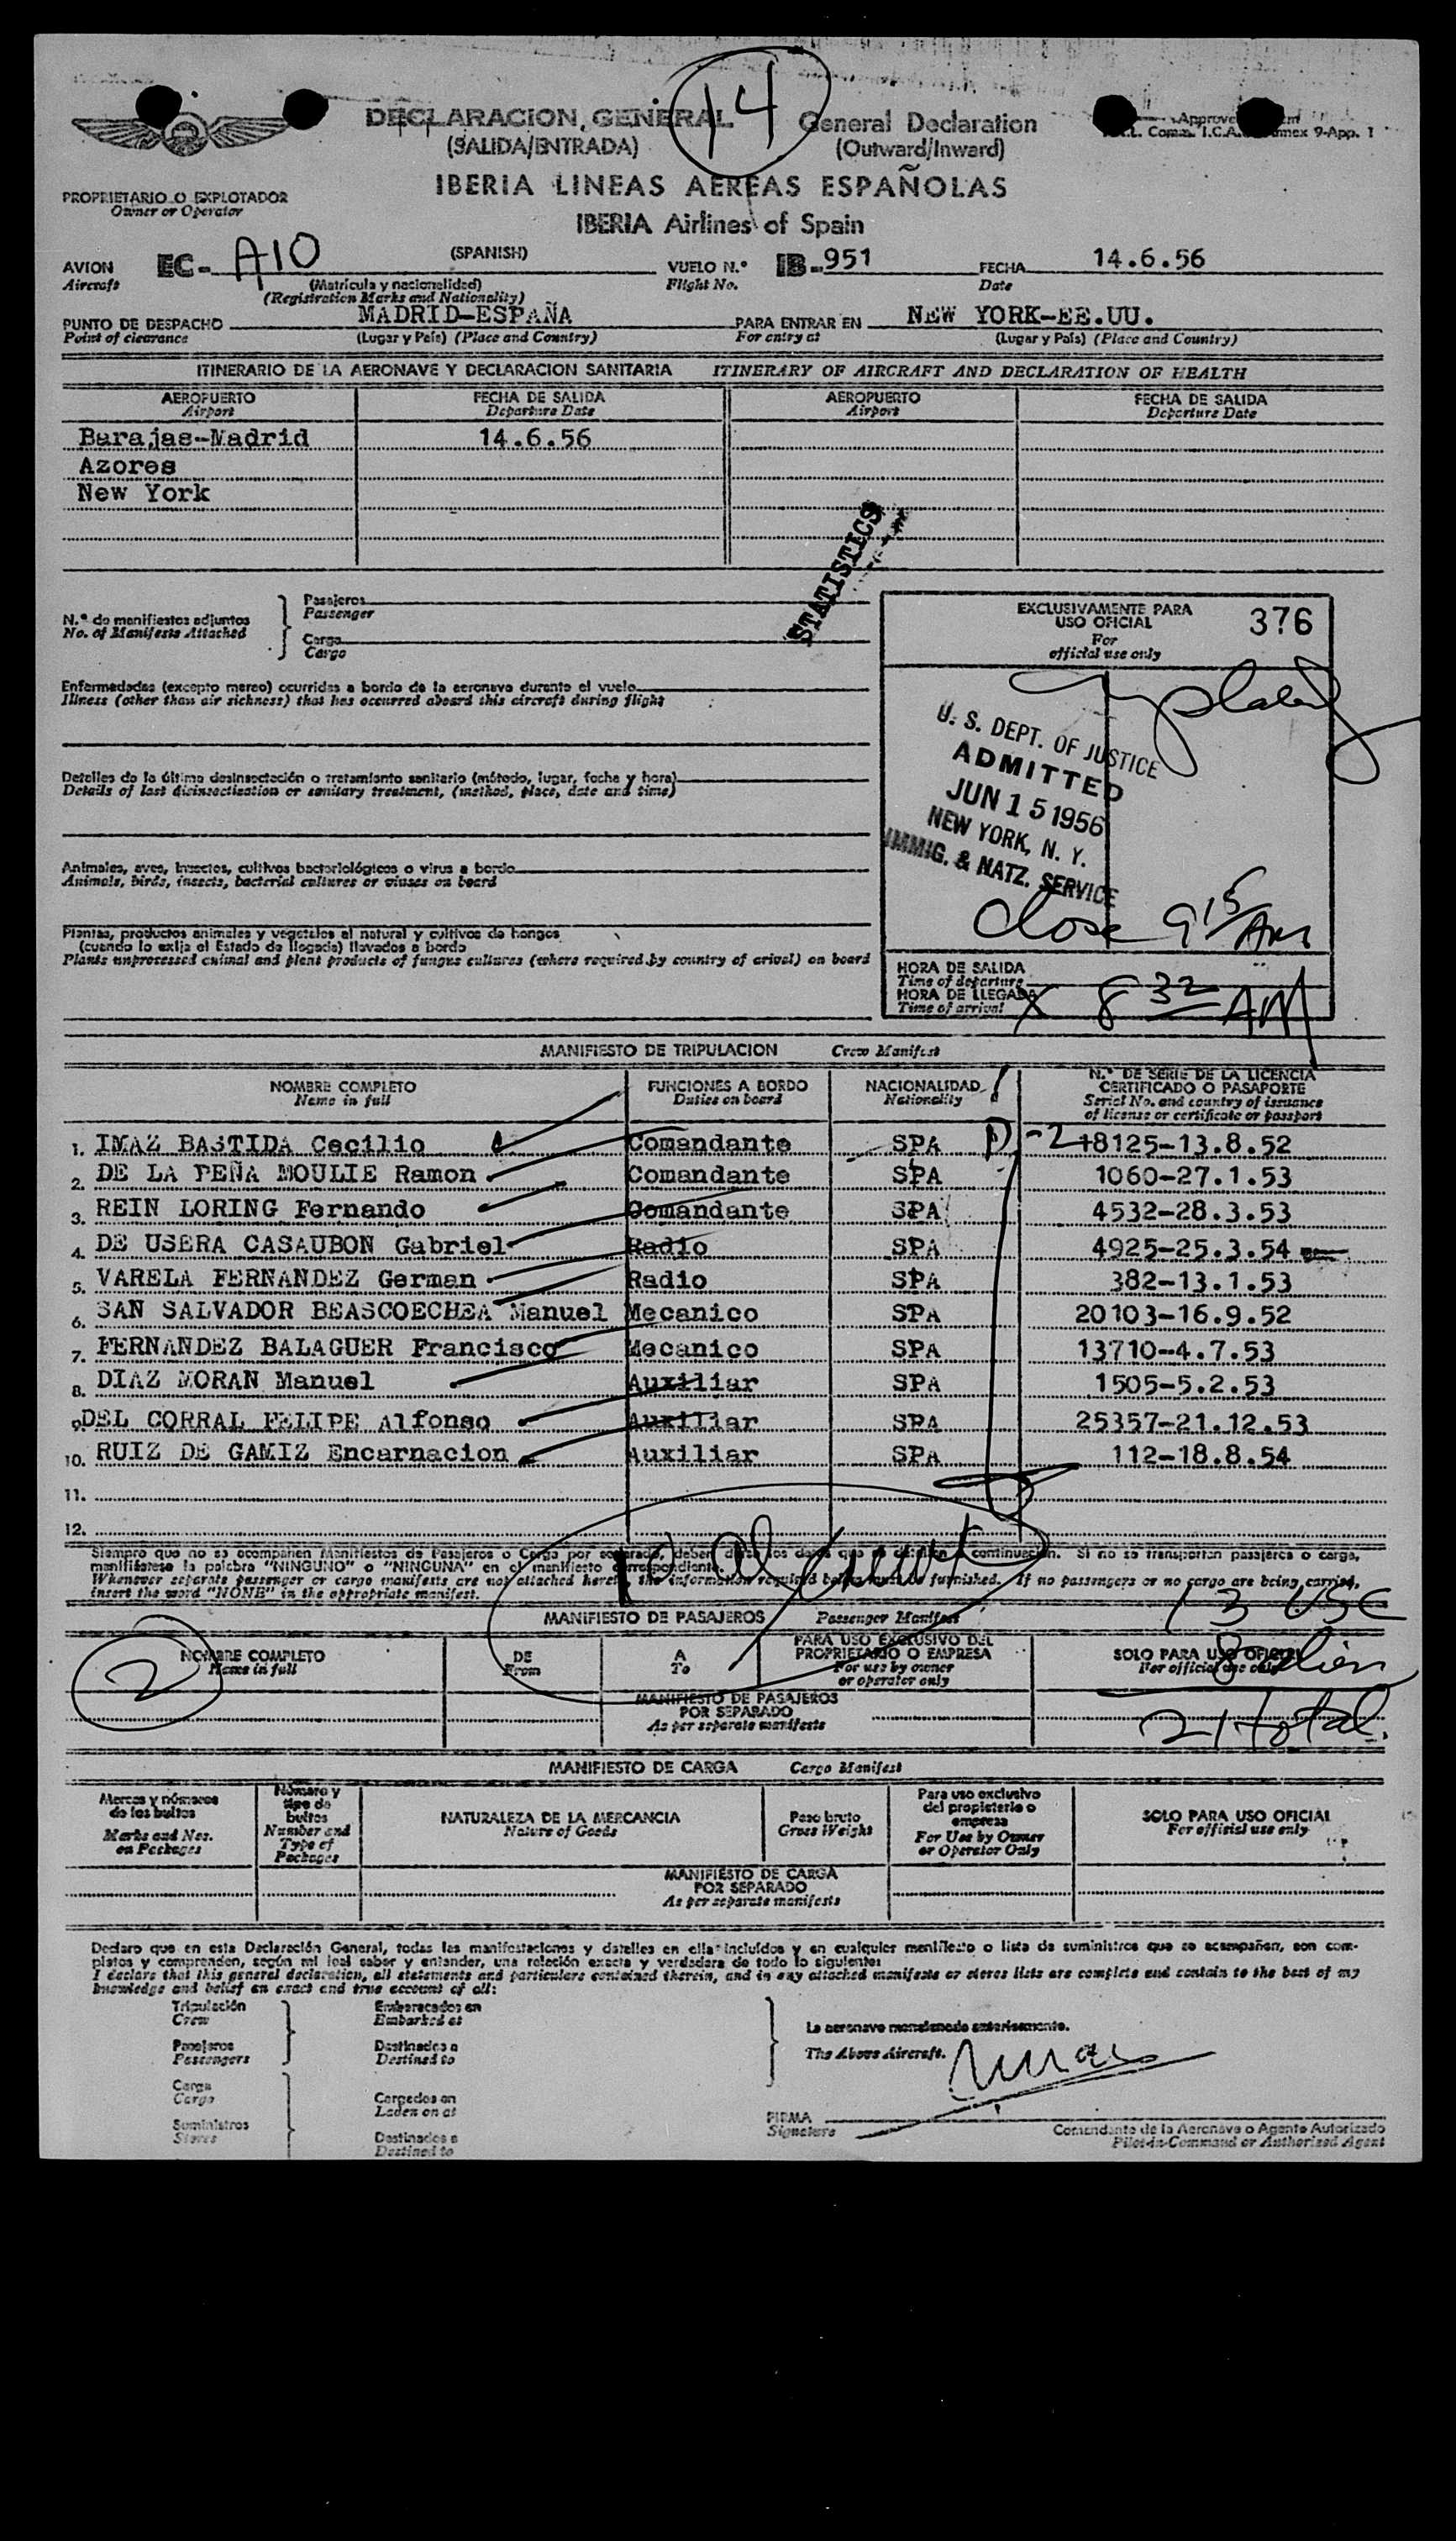 14
DECLARACION GENERAL
(SALIDA/ENTRADA)
General Declaration
(Outward/Inward)
IBERIA LINEAS AEREAS ESPAÑOLAS
IBERIA Airlines of Spain
PROPIETARIO O EXPLOTADOR
Owner or Operator
AVION EC- AIO (SPANISH) VUELO N.º IB-951 FECHA 14.6.56
Aircraft (Matrícula y nacionalidad) Flight No. Date
(Registration Marks and Nationality)
PUNTO DE DESPACHO MADRID-ESPAÑA PARA ENTRAR EN NEW YORK-EE.UU.
Point of clearance (Lugar y País) (Place and Country) For entry at (Lugar y País) (Place and Country)
ITINERARIO DE LA AERONAVE Y DECLARACION SANITARIA ITINERARY OF AIRCRAFT AND DECLARATION OF HEALTH
AEROPUERTO FECHA DE SALIDA AEROPUERTO FECHA DE SALIDA
Airport Departure Date Airport Departure Date
Barajas-Madrid 14.6.56
Azores
New York
STATISTICS
N.º de manifiestos adjuntos
No. of Manifests Attached
Pasajeros
Passenger
Cargo
Cargo
EXCLUSIVAMENTE PARA
USO OFICIAL
For
official use only
376
Enfermedades (excepto mareo) ocurridas a bordo de la aeronave durante el vuelo
Illness (other than air sickness) that has occurred aboard this aircraft during flight
U. S. DEPT. OF JUSTICE
ADMITTED
JUN 15 1956
NEW YORK, N. Y.
IMMIG. & NATZ. SERVICE
Detalles de la última desinsectación o tratamiento sanitario (método, lugar, fecha y hora)
Details of last disinsectization or sanitary treatment, (method, place, date and time)
Animales, aves, insectos, cultivos bacteriológicos o virus a bordo
Animals, birds, insects, bacterial cultures or viuses on board
Close 9 15 AM
Plantas, productos animales y vegetales al natural y cultivos de hongos
(cuando lo exija el Estado de llegada) llevados a bordo
Plants unprocessed animal and plant products of fungus cultures (where required by country of arival) on board
HORA DE SALIDA
Time of departure
HORA DE LLEGADA
Time of arrival X 8 32 AM
MANIFIESTO DE TRIPULACION Crew Manifest
NOMBRE COMPLETO FUNCIONES A BORDO NACIONALIDAD N.º DE SERIE DE LA LICENCIA
Name in full Duties on board Nationality CERTIFICADO O PASAPORTE
Serial No. and country of issuance
of license or certificate or passport
1. IMAZ BASTIDA Cecilio Comandante SPA D-2 18125-13.8.52
2. DE LA PEÑA MOULIE Ramon Comandante SPA 1060-27.1.53
3. REIN LORING Fernando Comandante SPA 4532-28.3.53
4. DE USERA CASAUBON Gabriel Radio SPA 4925-25.3.54
5. VARELA FERNANDEZ German Radio SPA 382-13.1.53
6. SAN SALVADOR BEASCOECHEA Manuel Mecanico SPA 20103-16.9.52
7. FERNANDEZ BALAGUER Francisco Mecanico SPA 13710-4.7.53
8. DIAZ MORAN Manuel Auxiliar SPA 1505-5.2.53
9. DEL CORRAL FELIPE Alfonso Auxiliar SPA 25357-21.12.53
10. RUIZ DE GAMIZ Encarnacion Auxiliar SPA 112-18.8.54
11.
12.
Siempre que no se acompañen Manifiestos de Pasajeros o Carga por separado, deben darse los datos que se detallan a continuación. Si no se transportan pasajeros o carga,
manifiéstese la palabra "NINGUNO" o "NINGUNA" en el manifiesto correspondiente.
Whenever separate passenger or cargo manifests are not attached hereto, the information required below must be furnished. If no passengers or no cargo are being carried,
insert the word "NONE" in the appropriate manifest.
13 USC
MANIFIESTO DE PASAJEROS Passenger Manifest
2
NOMBRE COMPLETO DE A PARA USO EXCLUSIVO DEL SOLO PARA USO OFICIAL
Name in full From To PROPRIETARIO O EMPRESA For official use only
For use by owner
or operator only
8 alien
MANIFIESTO DE PASAJEROS
POR SEPARADO
As per separate manifests
21 total
MANIFIESTO DE CARGA Cargo Manifest
Marcas y números
de los bultos
Marks and Nos.
on Packages
Número y
tipo de
bultos
Number and
Type of
Packages
NATURALEZA DE LA MERCANCIA
Nature of Goods
Peso bruto
Gross Weight
Para uso exclusivo
del propietario o
empresa
For Use by Owner
or Operator Only
SOLO PARA USO OFICIAL
For official use only
MANIFIESTO DE CARGA
POR SEPARADO
As per separate manifests
Declaro que en esta Declaración General, todas las manifestaciones y datelles en ella incluídos y en cualquier manifiesto o lista de suministros que se acompañan, son com-
pletos y comprenden, según mi leal saber y entender, una relación exacta y verdadera de todo lo siguiente:
I declare that this general declaration, all statements and particulars contained therein, and in any attached manifests or stores lists are complete and contain to the best of my
knowledge and belief an exact and true account of all:
Tripulación
Crew
Pasajeros
Passengers
Embarcados en
Embarked at
Destinados a
Destined to
La aeronave mencionada anteriormente.
The Above Aircraft.
Carga
Cargo
Suministros
Stores
Cargados en
Laden on at
Destinados a
Destined to
FIRMA
Signature
Comandante de la Aeronave o Agente Autorizado
Pilot-in-Command or Authorized Agent